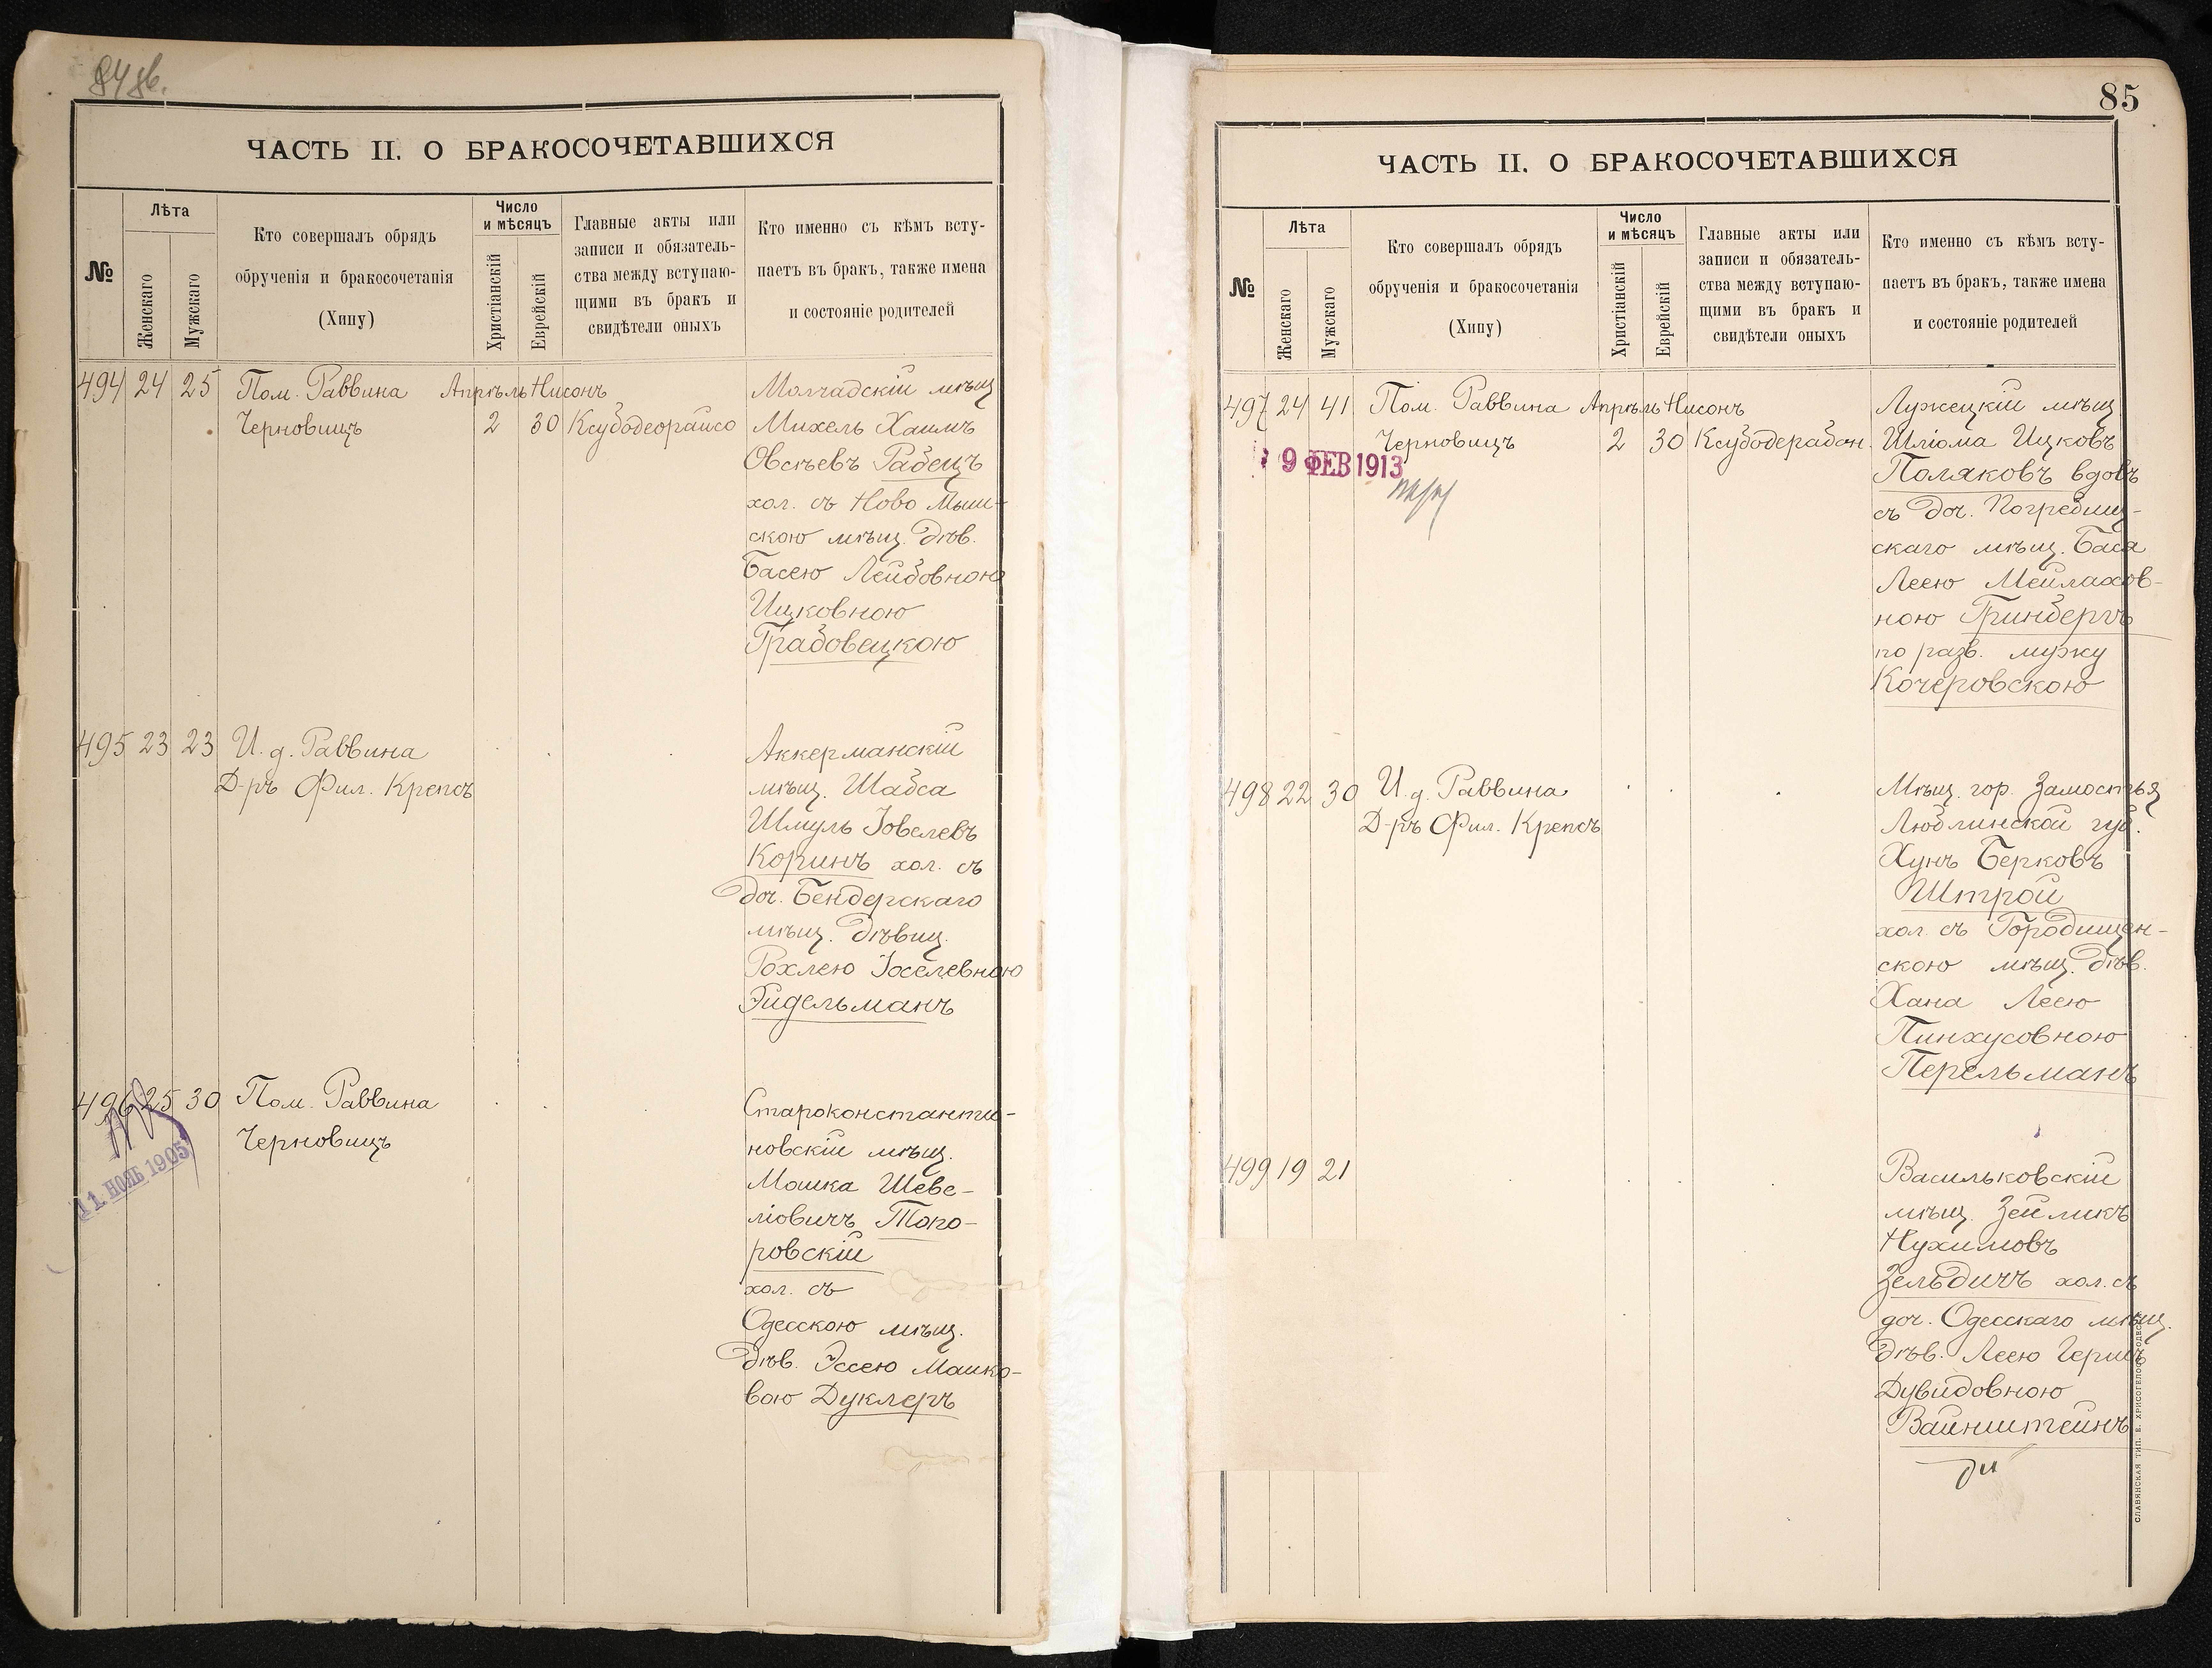 84 об.
ЧАСТЬ II. О БРАКОСОЧЕТАВШИХСЯ
№
Лѣта
Женскаго
Мужскаго
Кто совершалъ обрядъ
обрученія и бракосочетанія
(Хипу)
Число
и мѣсяцъ
Христіанскій
Еврейскій
Главные акты или
записи и обязатель-
ства между вступаю-
щими въ бракъ и
свидѣтели оныхъ
Кто именно съ кѣмъ всту-
паетъ въ бракъ, также имена
и состояніе родителей
494 24 25 Пом. Раввина Апрѣль Нисонъ Молчадскій мѣщ
Черновицъ 2 30 Ксубодеорайсо Михель Хаимъ
Овсѣевъ Рабецъ
хол. съ Ново Мыш-
скою мѣщ. дѣв.
Басею Лейбовною
Ицковною
Грабовецкою
495 23 23 И. д. Раввина Аккерманскій
Д-ръ Фил. Крепсъ мѣщ. Шабса
Шмуль Іовелевъ
Коринъ хол. съ
доч. Бендерскаго
мѣщ. дѣвиц.
Рохлею Іоселевною
Эйдельманъ
496 25 30 Пом. Раввина Староконстанти-
Черновицъ новскій мѣщ.
11 НОЯБ 1905
Мошка Шеве-
ліовичъ Топо-
ровскій
хол. съ
Одесскою мѣщ.
дѣв. Эссею Мошко-
вою Дуклеръ
85
ЧАСТЬ II. О БРАКОСОЧЕТАВШИХСЯ
№
Лѣта
Женскаго
Мужскаго
Кто совершалъ обрядъ
обрученія и бракосочетанія
(Хипу)
Число
и мѣсяцъ
Христіанскій
Еврейскій
Главные акты или
записи и обязатель-
ства между вступаю-
щими въ бракъ и
свидѣтели оныхъ
Кто именно съ кѣмъ всту-
паетъ въ бракъ, также имена
и состояніе родителей
497 24 41 Пом. Раввина Апрѣль Нисонъ Лужецкій мѣщ
Черновицъ 2 30 Ксубодерабон. Шліома Ицковъ
9 ФЕВ 1913
Поляковъ вдовъ
съ доч. Погребищ-
скаго мѣщ. Бася
Леею Мейлахов-
ною Гринбергъ
по разв. мужу
Кочеровскою
498 22 30 И. д. Раввина Мѣщ. гор. Замостья
Д-ръ Фил. Крепсъ Люблинской губ.
Хунъ Берковъ
Штрой
хол. съ Городищен-
скою мѣщ. дѣв.
Хана Леею
Пинхусовною
Перельманъ
499 19 21 Васильковскій
мѣщ. Зейликъ
Нухимовъ
Зельдичъ хол. съ
доч. Одесскаго мѣщ.
дѣв. Леею Герш
Дувидовною
Вайнштейнъ
СЛАВЯНСКАЯ ТИП. Е. ХРИСОГЕЛОСЪ, ОДЕССА